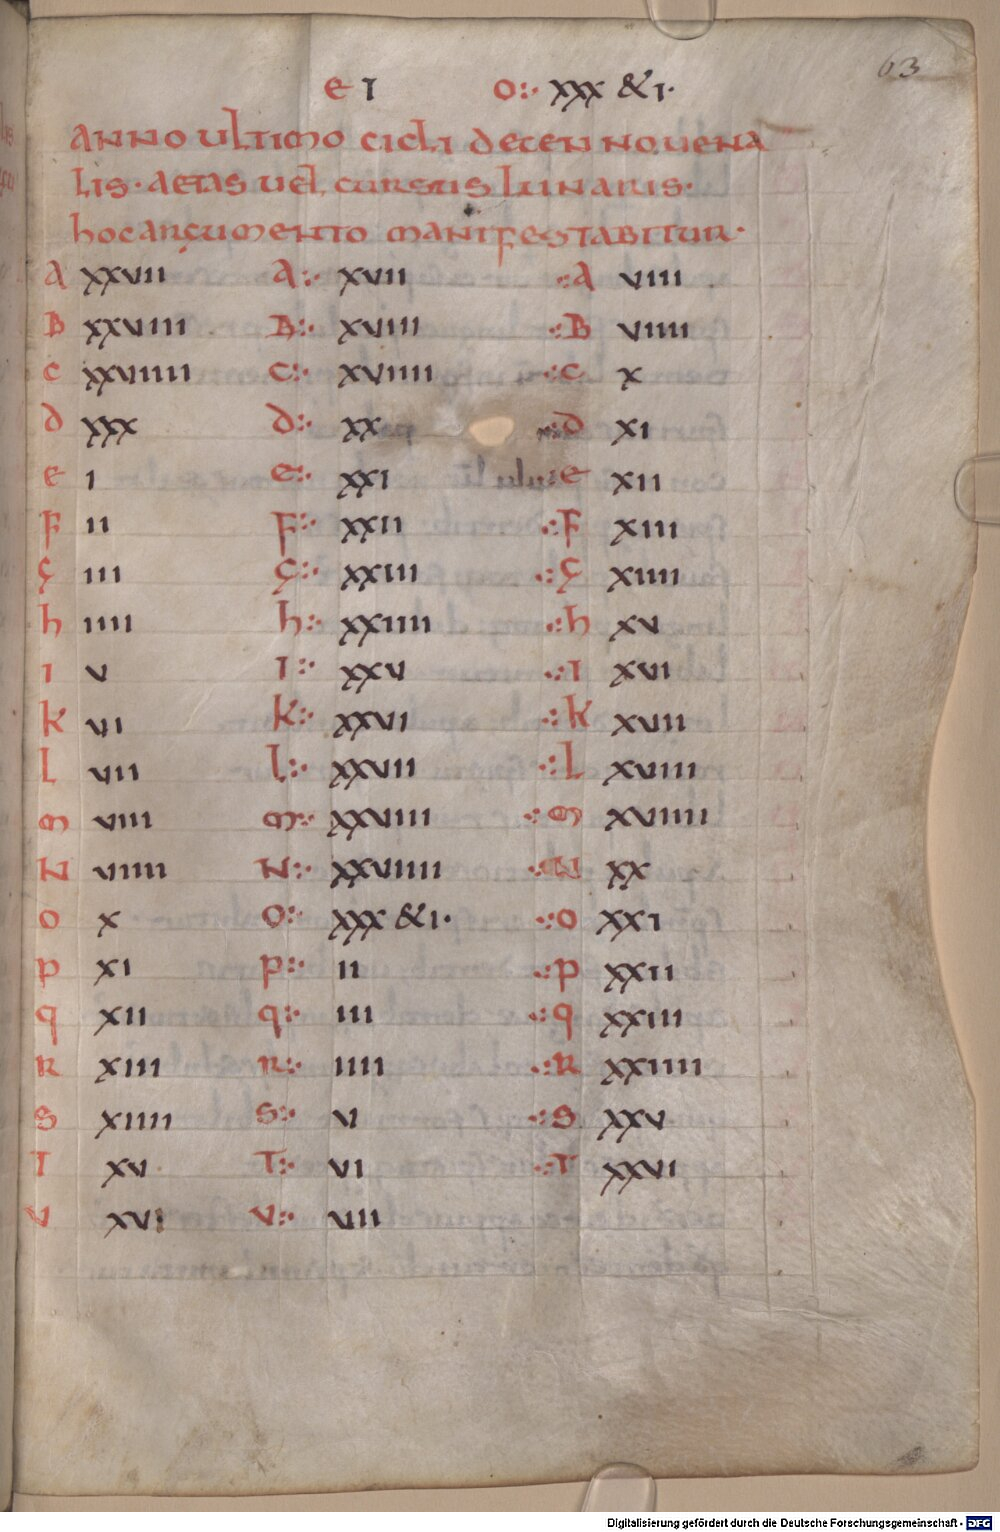 63
e I O:· XXX &I·
ANNO ULTIMO CICLI DECENNOUENA
LIS· AETAS UEL CURSUS LUNARIS·
hOC ARGUMENTO MANIFESTABITUR·
A XXVII A:· XVII ·:A VIII
B XXVIII B:· XVIII ·:B VIIII
C XXVIIII C:· XVIIII ·:C X
d XXX d:· XX ·:d XI
e I e:· XXI ·:e XII
F II F:· XXII ·:F XIII
G III G:· XXIII ·:G XIIII
h IIII h:· XXIIII ·:h XV
I V I:· XXV ·:I XVI
K VI K:· XXVI ·:K XVII
L VII L:· XXVII ·:L XVIII
M VIII M:· XXVIII ·:M XVIIII
N VIIII N:· XXVIIII ·:N XX
O X O:· XXX &I· ·:O XXI
P XI P:· II ·:P XXII
q XII q:· III ·:q XXIII
R XIII R:· IIII ·:R XXIIII
S XIIII S:· V ·:S XXV
T XV T:· VI ·:T XXVI
V XVI V:· VII
Digitalisierung gefördert durch die Deutsche Forschungsgemeinschaft - DFG